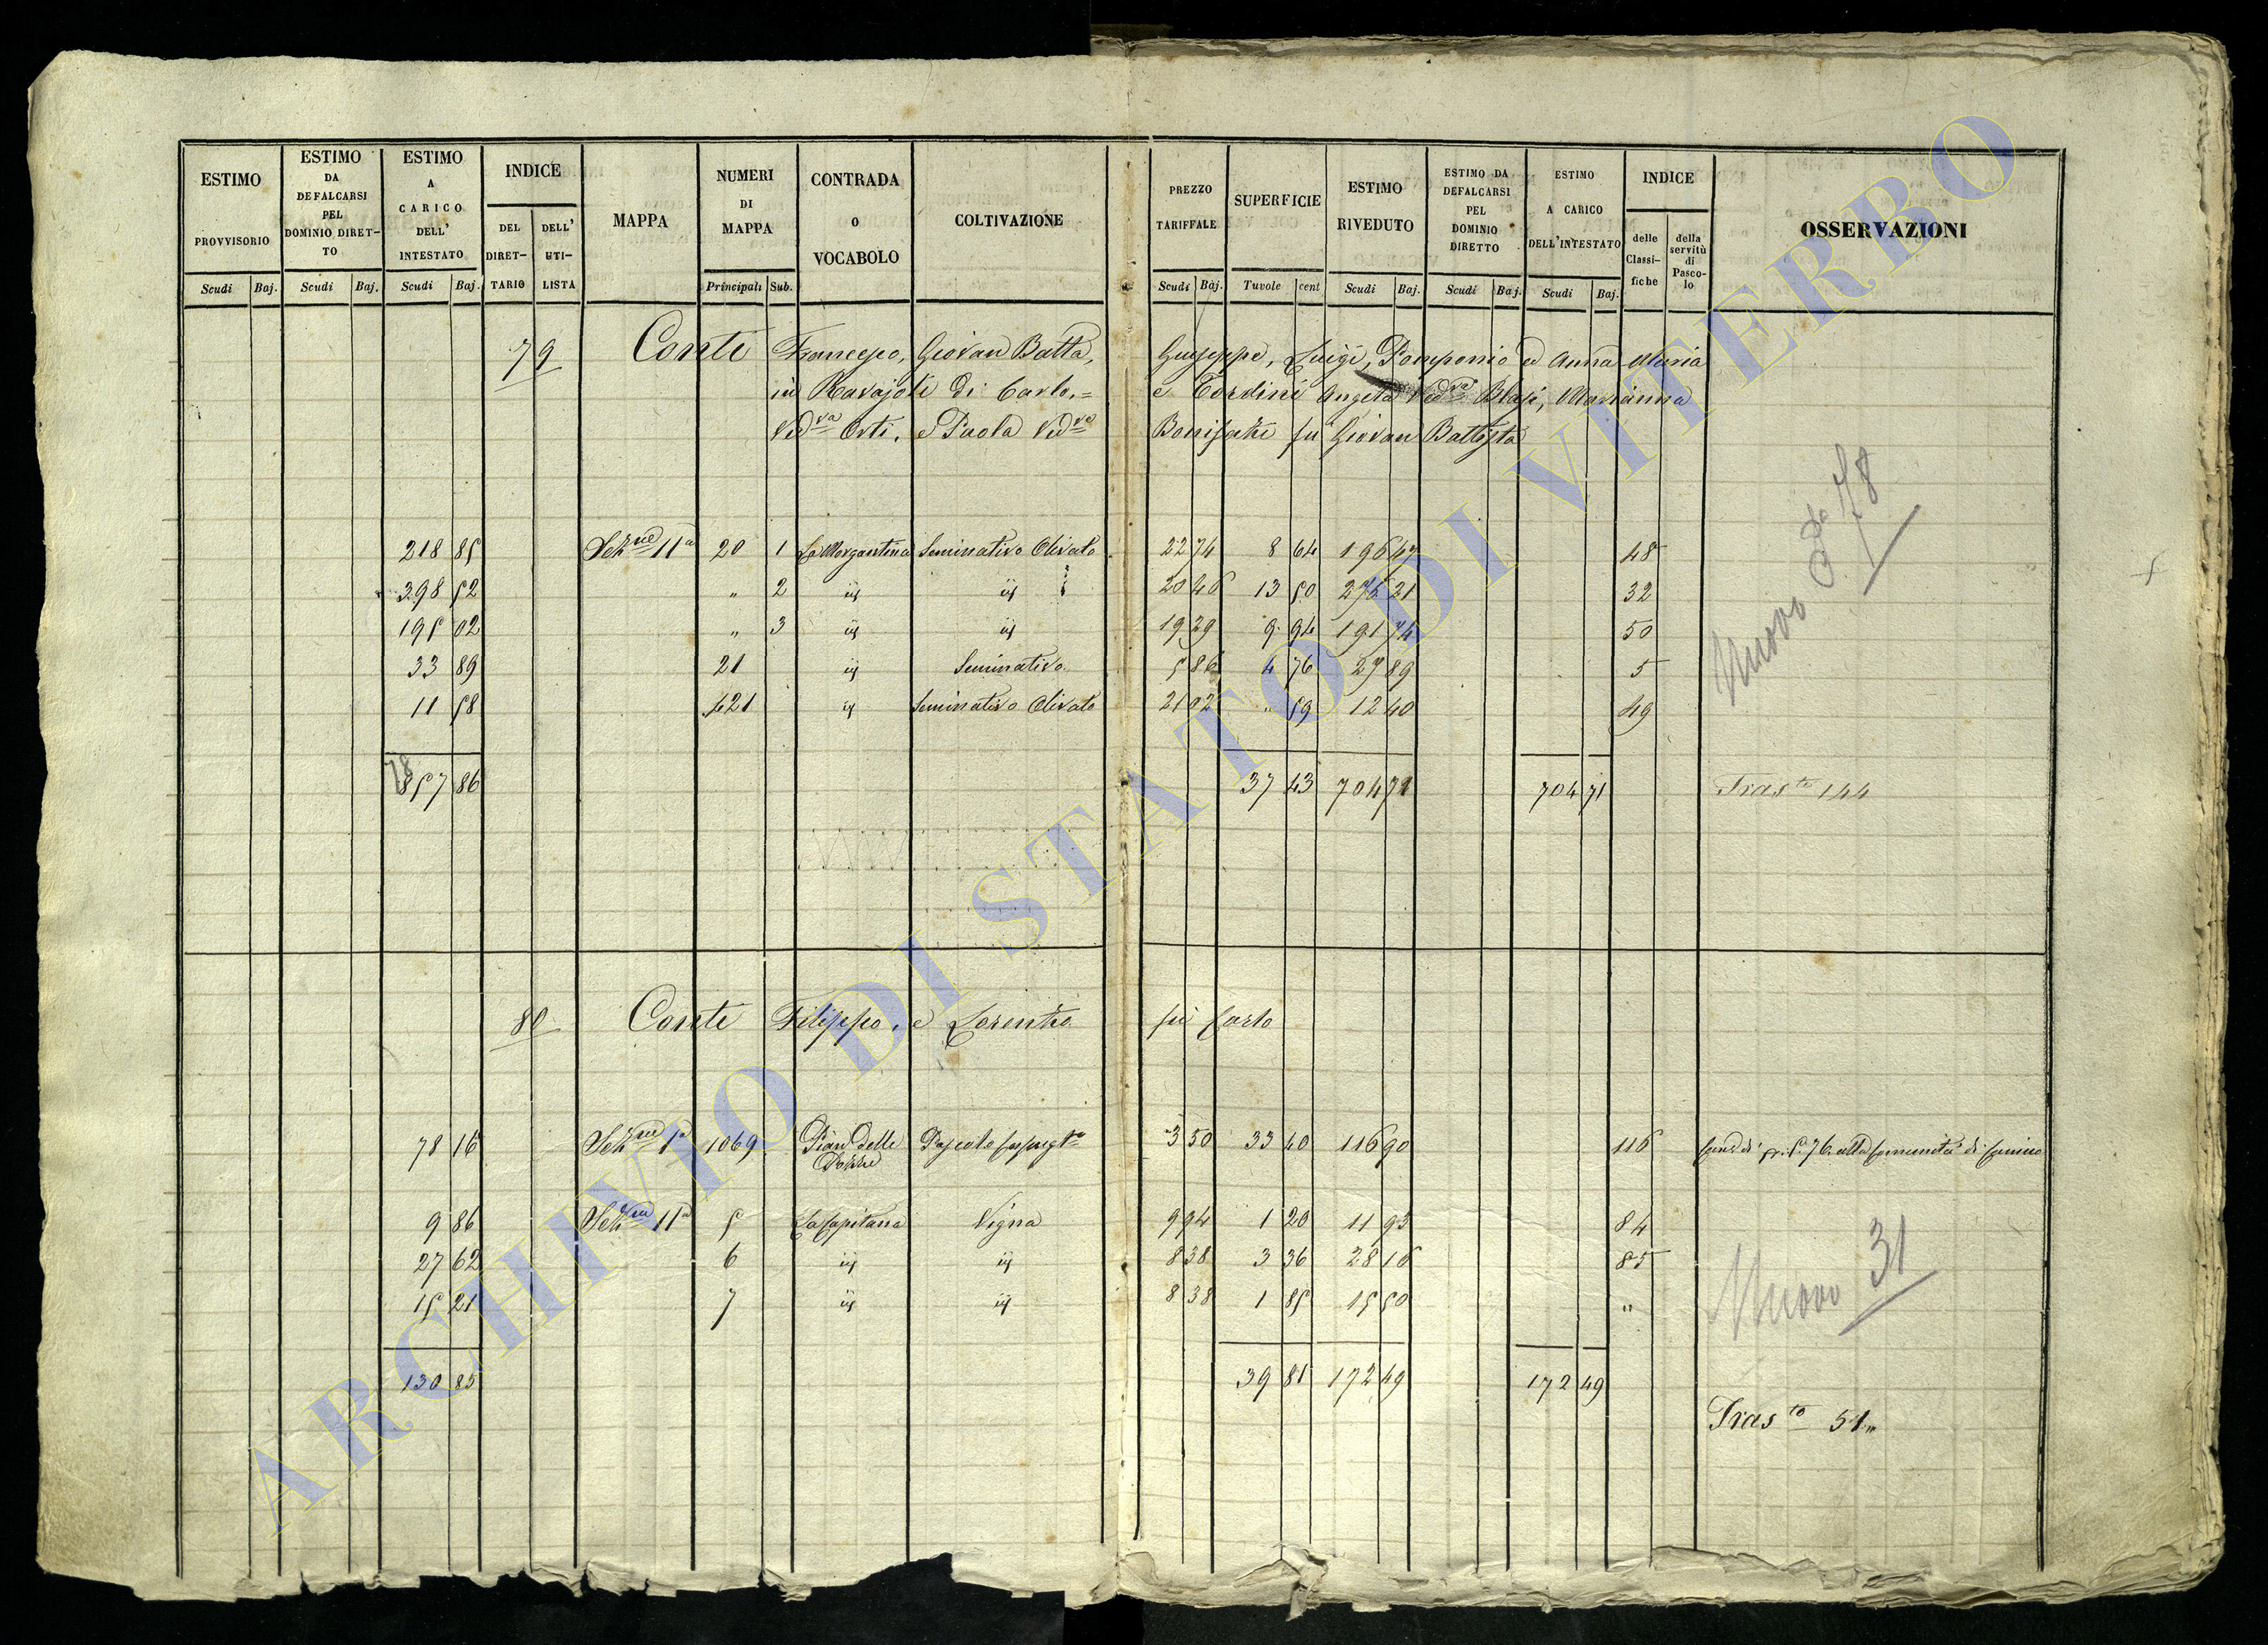 ESTIMO PROVVISORIO Scudi Baj.
ESTIMO DA DEFALCARSI PEL DOMINIO DIRET-TO Scudi Baj.
ESTIMO A CARICO DELL' INTESTATO Scudi Baj.
INDICE DEL DIRET-TARIO DELL' UTI-LISTA
MAPPA
NUMERI DI MAPPA Principali Sub.
CONTRADA O VOCABOLO
COLTIVAZIONE
PREZZO TARIFFALE Scudi Baj.
SUPERFICIE Tavole cent
ESTIMO RIVEDUTO Scudi Baj.
ESTIMO DA DEFALCARSI PEL DOMINIO DIRETTO Scudi Baj.
ESTIMO A CARICO DELL'INTESTATO Scudi Baj.
INDICE delle Classi-fiche della servitù di Pasco-lo
OSSERVAZIONI
79 Conti Francesco, Giovan Batta, Giuseppe, Luigi, Pomponio ed Anna Maria
in Ravajoli di Carlo,= e Tordini Angela Ved.va Blasi, Marianna
Ved.va Orti, e Paola Ved.va Bonifazi fu Giovan Battista
218 85 Sez.ne 11a 20 1 La Morgantina Seminativo Olivato 22 74 8 64 196 47 48
398 52 " 2 iij iij 20 46 13 50 276 21 32
195 02 " 3 iij iij 19 29 9 94 191 74 50
33 89 21 iij Seminativo 5 86 4 76 27 89 5
11 58 421 iij Seminativo Olivato 21 02 " 59 12 40 49
Nuovo 78
78
857 86 37 43 704 71 704 71 Tras.to 144
80 Conti Filippo, e Lorenzo fu Carlo
78 16 Sez.ne 1a 1069 Pian delle Pozze Pascolo 3 50 33 40 116 90 116 alla Comunità di
9 86 Sez.ne 11a 5 La Capitana Vigna 9 94 1 20 11 93 84
27 62 6 iij iij 8 38 3 36 28 16 85
15 21 7 iij iij 8 38 1 85 15 50 "
Nuovo 31
130 85 39 81 172 49 172 49
Tras.to 51"
ARCHIVIO DI STATO DI VITERBO